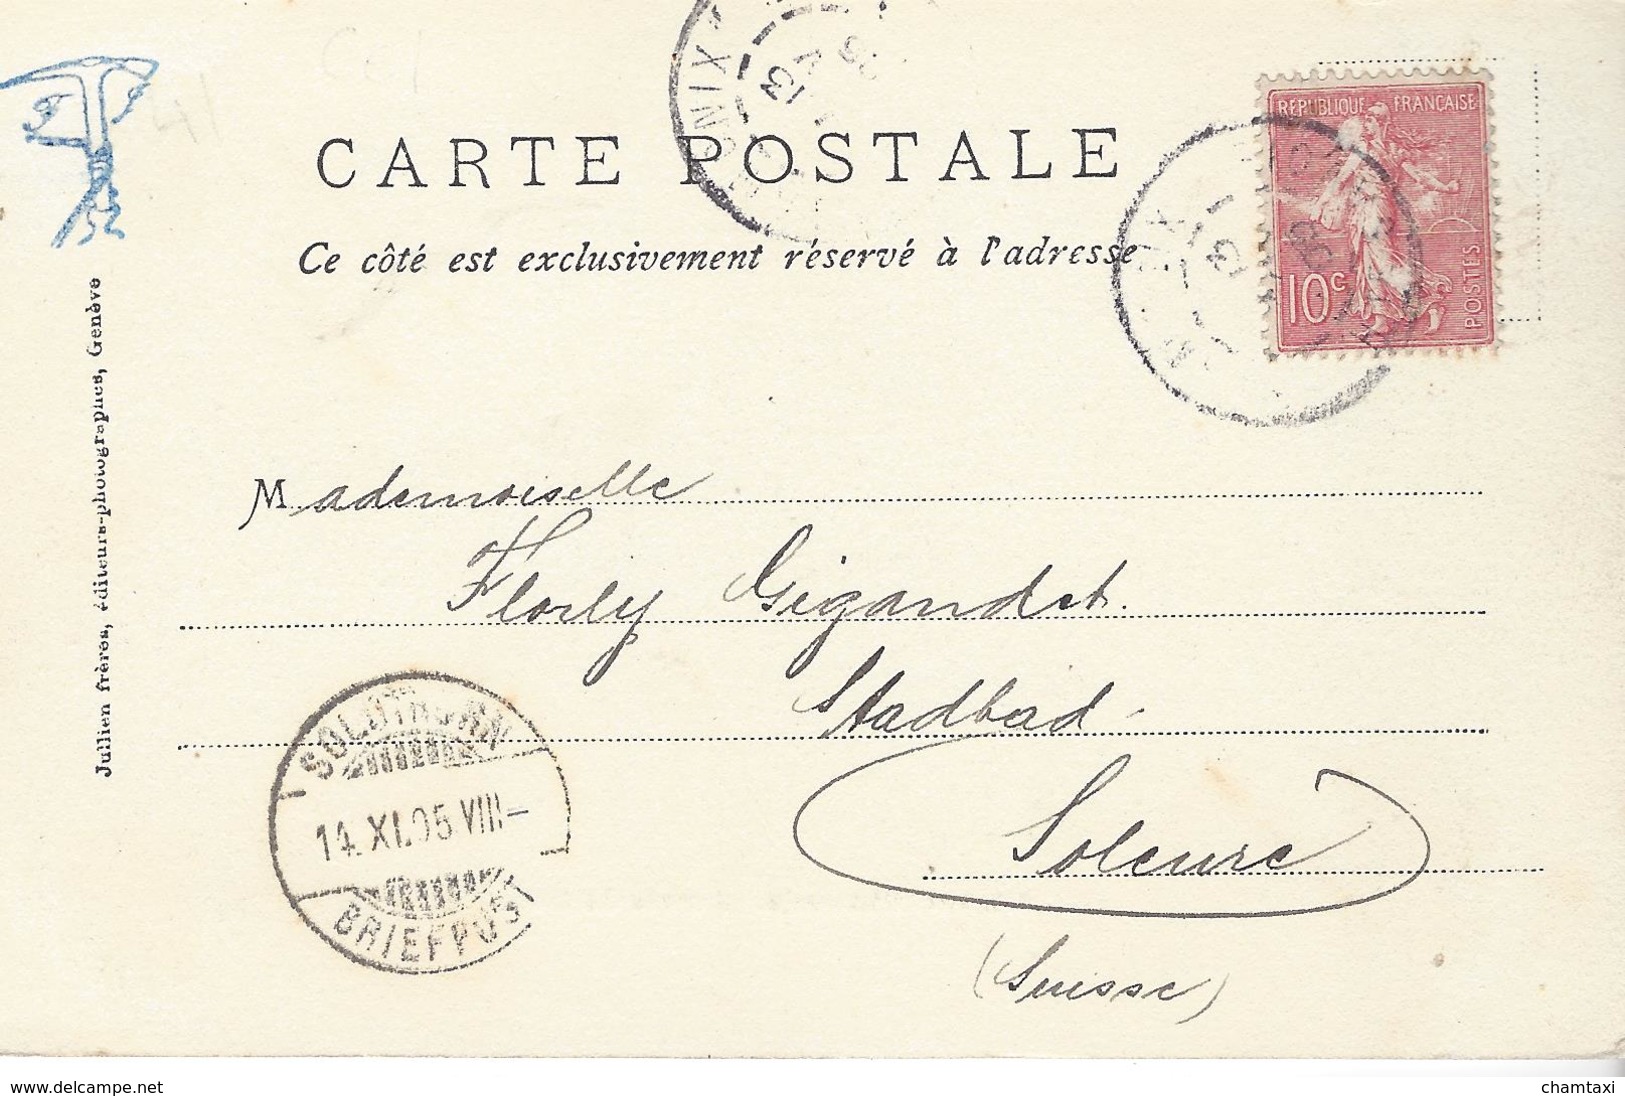 CARTE POSTALE
Ce côté est exclusivement réservé à l'adresse
RÉPUBLIQUE FRANÇAISE
10c
POSTES
Jullien frères, éditeurs-photographes, Genève
Mademoiselle
Florly Gigandet.
Stadbad
Soleure
(Suisse)
SOLOTHURN
14. XI. 05 VIII-
BRIEFPOST
www.delcampe.net
chamtaxi